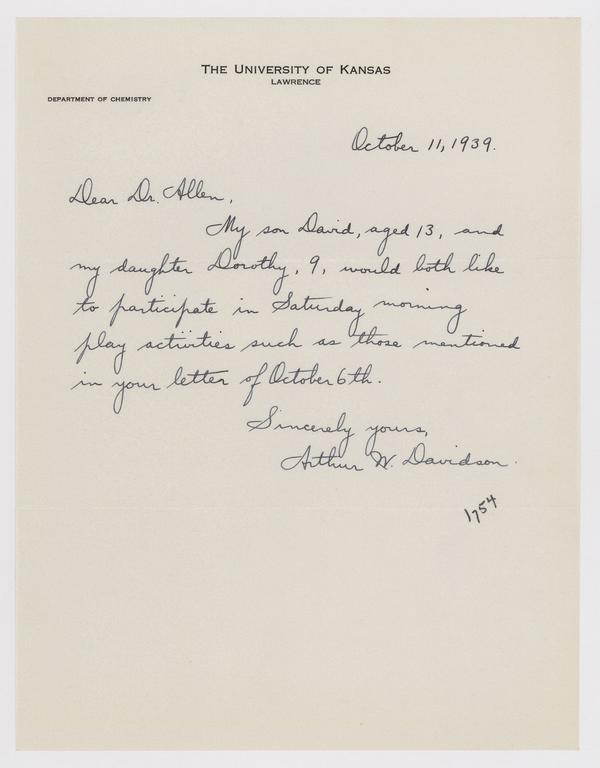 THE UNIVERSITY OF KANSAS
LAWRENCE
DEPARTMENT OF CHEMISTRY
October 11, 1939.
Dear Dr. Allen,
My son David, aged 13, and
my daughter Dorothy, 9, would both like
to participate in Saturday morning
play activities such as those mentioned
in your letter of October 6th.
Sincerely yours,
Arthur W. Davidson.
1754